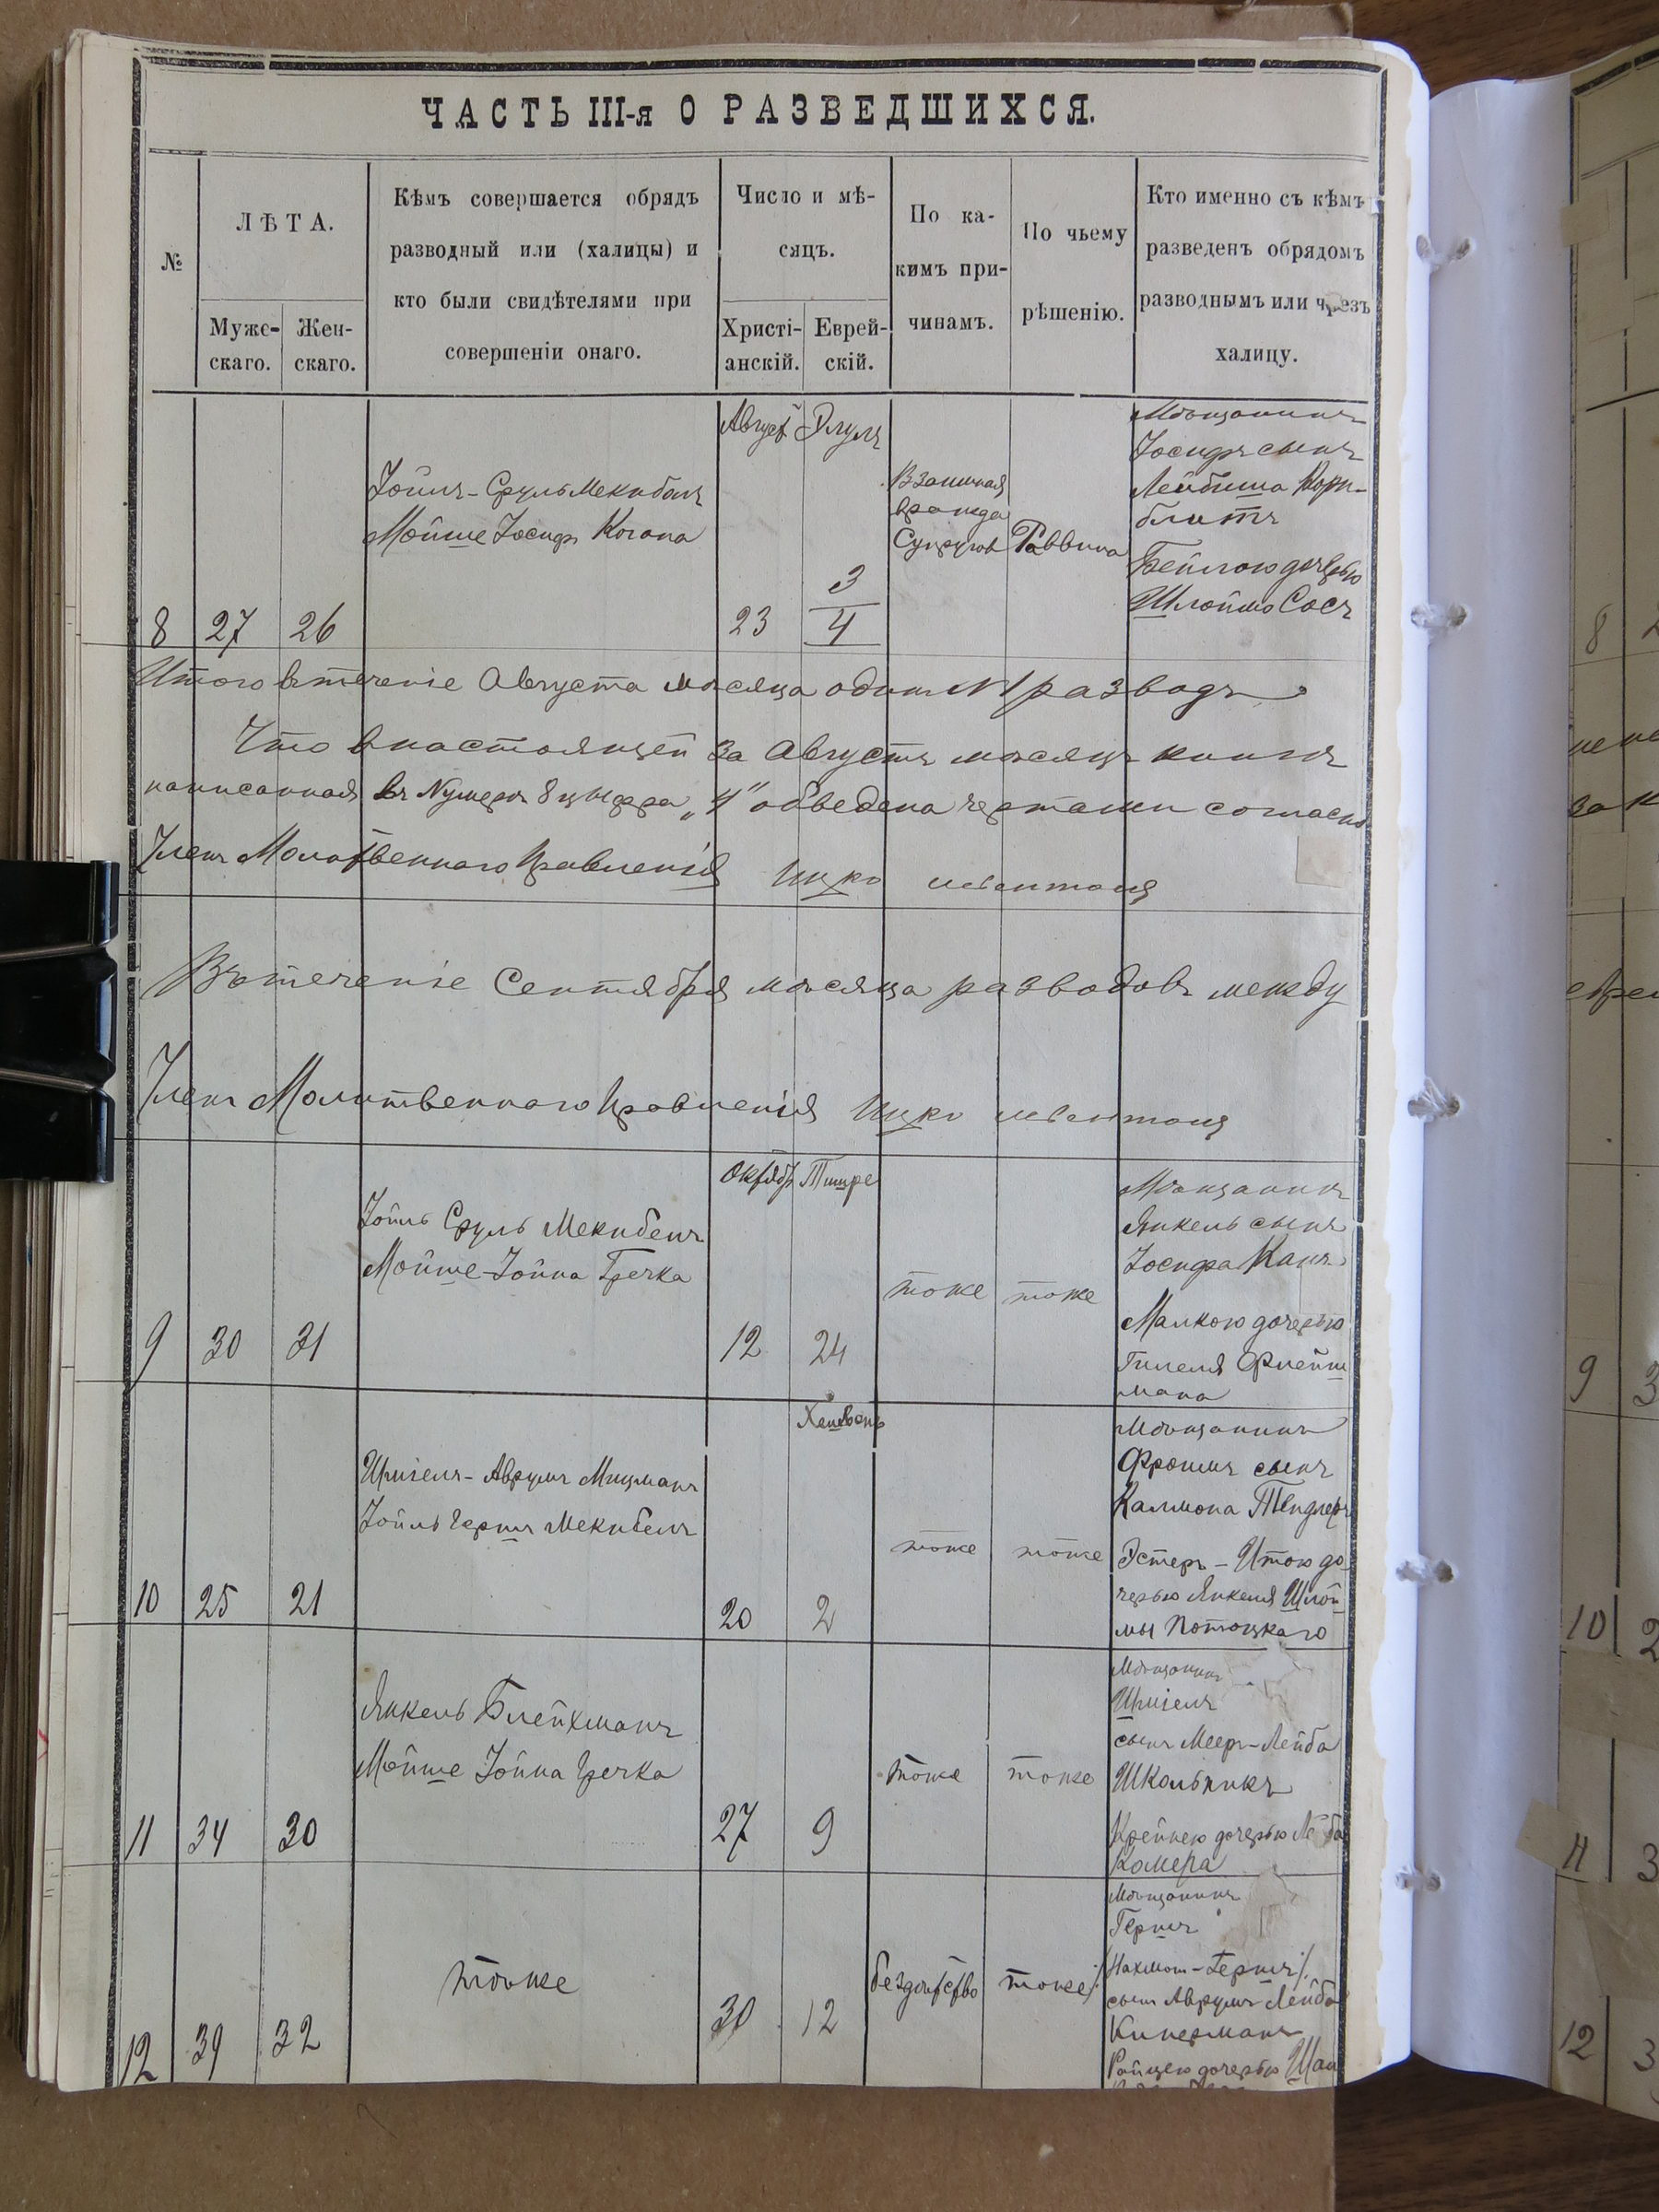 ЧАСТЬ III-я О РАЗВЕДШИХСЯ.
№
ЛѢТА.
Мужс-
скаго.
Жен-
скаго.
Кѣмъ совершается обрядъ
разводный или (халицы) и
кто были свидѣтелями при
совершеніи онаго.
Число и мѣ-
сяцъ.
Христі-
анскій.
Еврей-
скій.
По ка-
кимъ при-
чинамъ.
По чьему
рѣшенію.
Кто именно съ кѣмъ
разведенъ обрядомъ
разводнымъ или чрезъ
халицу.
8
27
26
Іойль-Сруль Мекибелъ
Мойше Іосифъ Когана
Август
Элулъ
23
3
4
Взаимная
вражда
Супругов
Раввина
Мѣщанинъ
Іосифъ сынъ
Лейбиша Корн-
блитъ
Бейлою дочерью
Шлоймо Сосъ
Итого втеченіе Августа мѣсяца одинъ №1 разводъ
Что внастоящей за Августъ мѣсяцъ книгѣ
написанная въ Нумерѣ 8 цыфра „4" обведена чертами согласно
Членъ Молитвенного Правленія Ицко
Втеченіе Сентября мѣсяца разводовъ между
Членъ Молитвенного Правленія Ицко
9
30
31
Іойль Сруль Мекибелъ
Мойше-Іойна Гречка
Октябр
Тишре
12
24
тоже
тоже
Мѣщанинъ
Янкель сынъ
Іосифа Кацъ
Малкою дочерью
Гилеля Флейш
мана
10
25
21
Шмиелъ-Аврумъ Мицманъ
Іойль Гершъ Мекибелъ
Хешвень
20
2
тоже
тоже
Мѣщанинъ
Фроимъ сынъ
Калмона Тендлеръ
Эстеръ-Итою до
черью Янкеля Шлой
мы Потоцкаго
11
34
30
Янкель Блейхманъ
Мойше Іойна Гречка
27
9
тоже
тоже
Мѣщанинъ
Шмиелъ
сынъ Мееръ-Лейба
Школьникъ
Крейнею дочерью
Комера
12
39
32
тоже
30
12
бездѣтство
тоже
Мѣщанинъ
Гершъ
Нахман-Гершъ/.
сынъ Аврумъ Лейба
Киперманъ
Ройцею дочерью
8
9
3
10
2
11
3
12
3